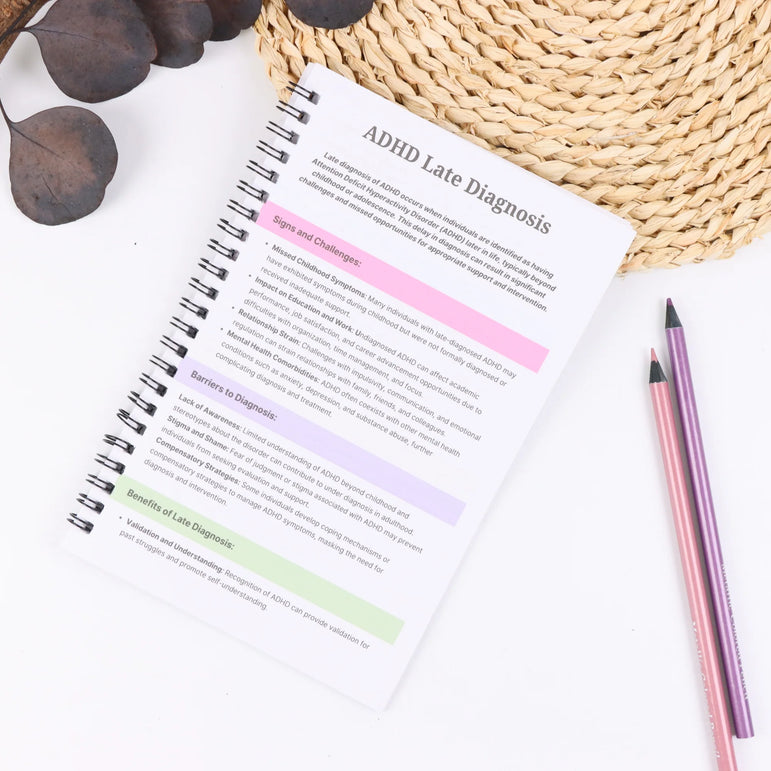 ADHD Late Diagnosis
Late diagnosis of ADHD occurs when individuals are identified as having
Attention Deficit Hyperactivity Disorder (ADHD) later in life, typically beyond
childhood or adolescence. This delay in diagnosis can result in significant
challenges and missed opportunities for appropriate support and intervention.
Signs and Challenges:
• Missed Childhood Symptoms: Many individuals with late-diagnosed ADHD may
have exhibited symptoms during childhood but were not formally diagnosed or
received inadequate support.
• Impact on Education and Work: Undiagnosed ADHD can affect academic
performance, job satisfaction, and career advancement opportunities due to
difficulties with organization, time management, and focus.
• Relationship Strain: Challenges with impulsivity, communication, and emotional
regulation can strain relationships with family, friends, and colleagues.
• Mental Health Comorbidities: ADHD often coexists with other mental health
conditions such as anxiety, depression, and substance abuse, further
complicating diagnosis and treatment.
Barriers to Diagnosis:
Lack of Awareness: Limited understanding of ADHD beyond childhood and
stereotypes about the disorder can contribute to under diagnosis in adulthood.
Stigma and Shame: Fear of judgment or stigma associated with ADHD may prevent
individuals from seeking evaluation and support.
Compensatory Strategies: Some individuals develop coping mechanisms or
compensatory strategies to manage ADHD symptoms, masking the need for
diagnosis and intervention.
Benefits of Late Diagnosis:
• Validation and Understanding: Recognition of ADHD can provide validation for
past struggles and promote self-understanding.